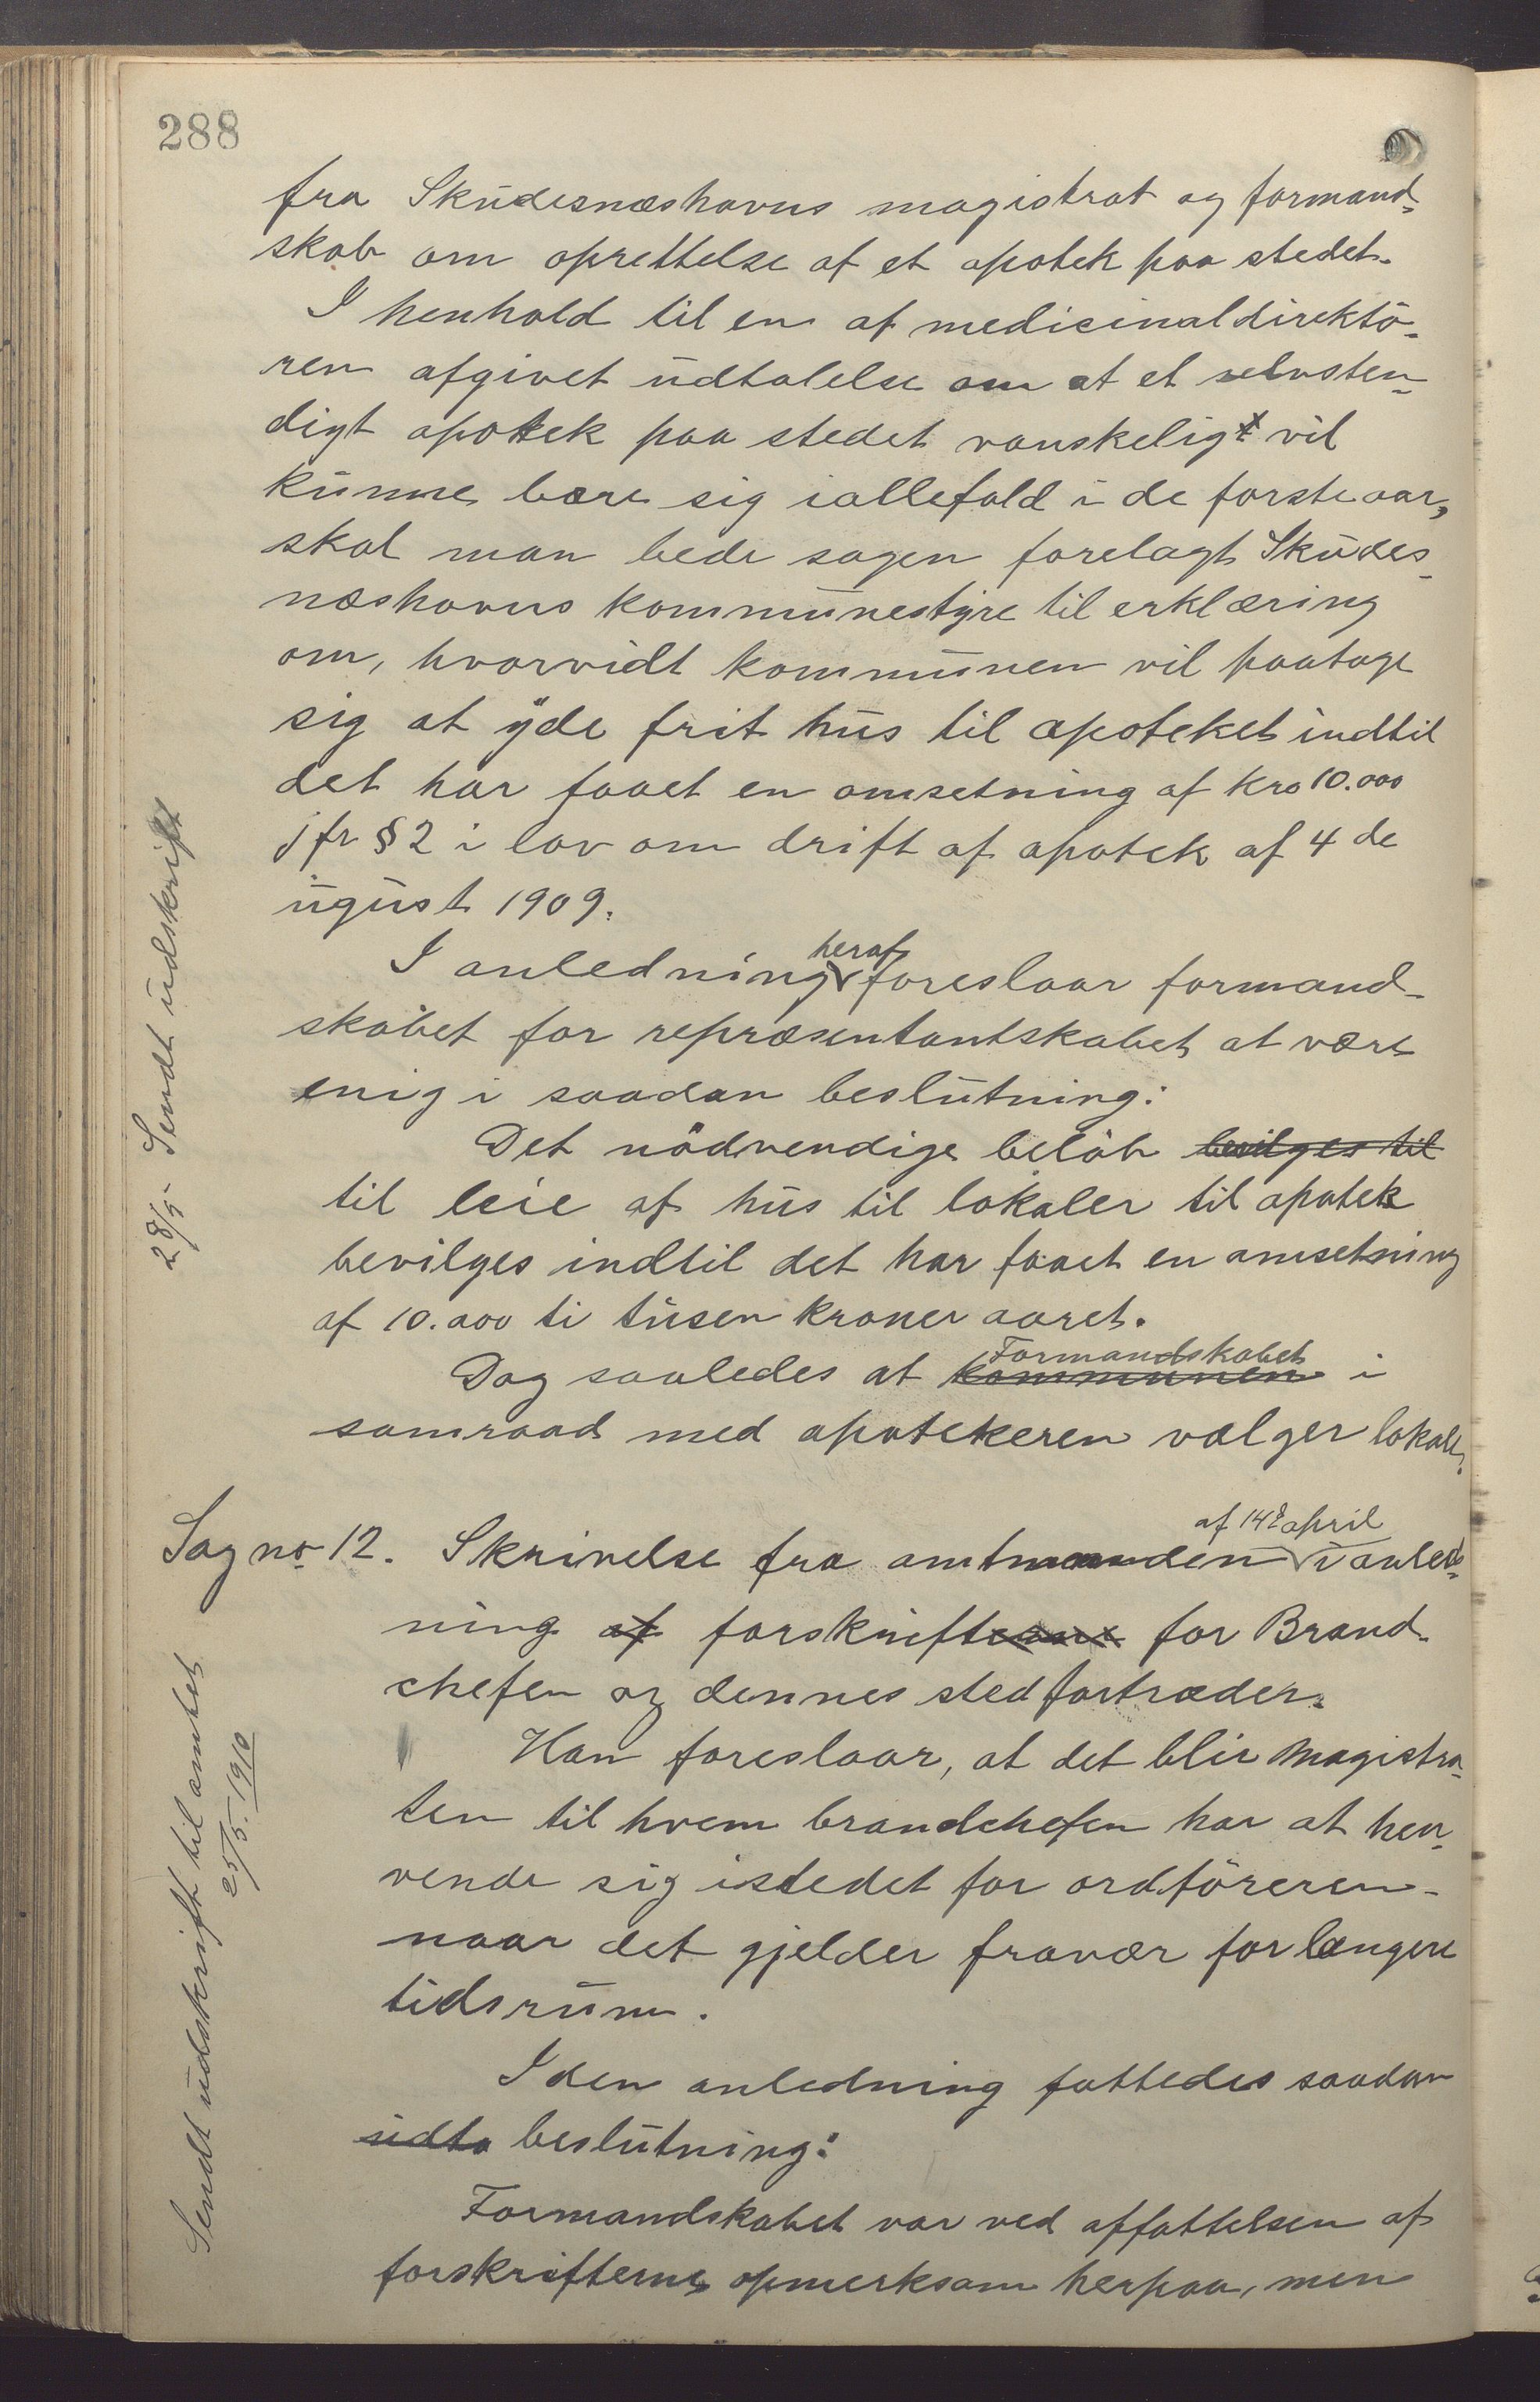 288
fra Skudesnæshavns magistrat og formand-
skab om oprettelse af et apotek paa stedet.
I henhold til en af medicinaldirektö-
ren afgivet udtalelse om at et selvsten-
digt apotek paa stedet vanskeligt vil
kunne bære sig iallefald i de første aar,
skal man bede sagen forelagt Skudes-
næshavns kommunestyre til erklæring
om, hvorvidt kommunen vil paatage
sig at yde frit hus til apoteket indtil
det har faaet en omsetning af kro 10.000
jfr § 2 i lov om drift af apotek af 4 de
ugust 1909.
I anledning heraf foreslaar formand-
skabet for repræsentantskabet at være
enig i saadan beslutning:
Det nödvendige belöb bevilges til
til leie af hus til lokaler til apotek
bevilges indtil det har faaet en omsetning
af 10.000 ti tusen kroner aaret.
Dog saaledes at kommunen Formandskabet i
samraad med apotekeren vælger lokale.
28/5 Sendt udskrift
Sag no 12. Skrivelse fra amtmanden af 14d april i anled-
ning af forskrifterne for Brand-
chefen og dennes stedfortræder.
Han foreslaar, at det blir Magistra-
ten til hvem brandchefen har at hen-
vende sig istedet for ordföreren -
naar det gjelder fravær for længere
tidsrum.
I den anledning fattedes saadan
udta beslutning:
Formandskabet var ved affattelsen af
forskrifterne opmerksom herpaa, men
Sendt udskrift til amtet
25/5. 1910